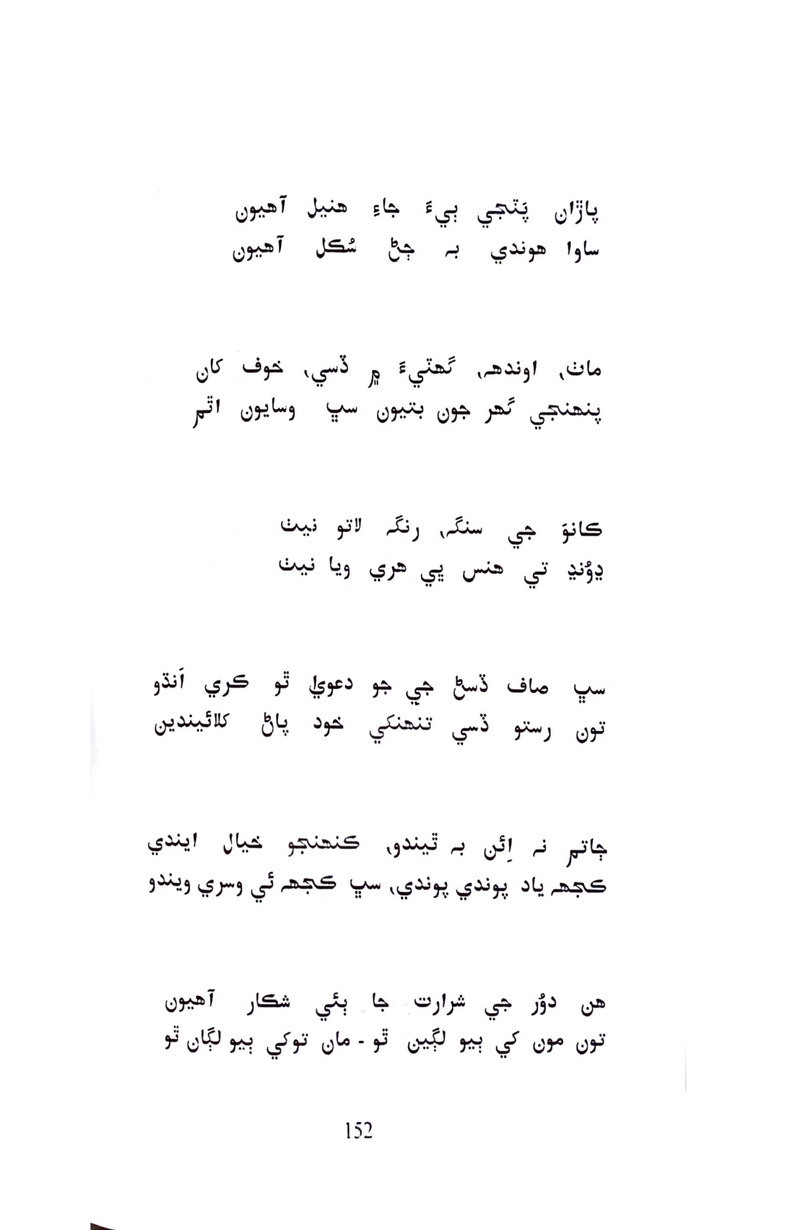 پاڙان پَٽجي ٻيءَ جاءِ هنيل آهيون
ساوا هوندي به ڄڻ سُڪل آهيون
ماٺ، اونده، گهٽيءَ ۾ ڏسي، خوف کان
پنهنجي گهر جون بتيون سڀ وسايون اٿم
ڪانوَ جي سنگ، رنگ لاتو نيٺ
ڍوُنڍ تي هنس پي هري ويا نيٺ
سڀ صاف ڏسڻ جي جو دعويٰ ٿو ڪري اَنڌو
تون رستو ڏسي تنهنکي خود پاڻ کلائيندين
ڄاتم نه اِئن به ٿيندو، ڪنهنجو خيال ايندي
ڪجهه ياد پوندي پوندي، سڀ ڪجهه ئي وسري ويندو
هن دوُر جي شرارت جا ٻئي شڪار آهيون
تون مون کي ٻيو لڳين ٿو - مان توکي ٻيو لڳان ٿو
152